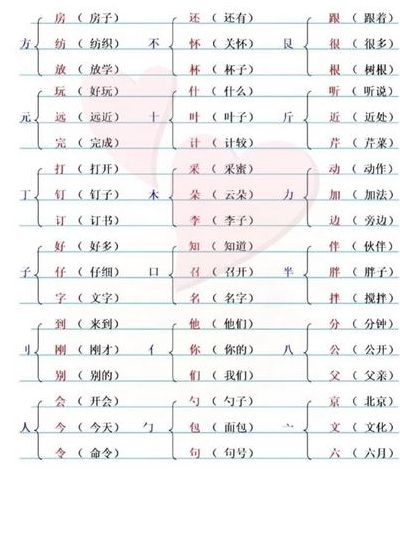 房（房子） 还（还有） 跟（跟着）
方 纺（纺织） 不 怀（关怀） 艮 很（很多）
放（放学） 杯（杯子） 根（树根）
玩（好玩） 什（什么） 听（听说）
元 远（远近） 十 叶（叶子） 斤 近（近处）
完（完成） 计（计较） 芹（芹菜）
打（打开） 采（采蜜） 动（动作）
丁 钉（钉子） 木 朵（云朵） 力 加（加法）
订（订书） 李（李子） 边（旁边）
好（好多） 知（知道） 伴（伙伴）
子 仔（仔细） 口 召（召开） 半 胖（胖子）
字（文字） 名（名字） 拌（搅拌）
到（来到） 他（他们） 分（分钟）
刂 刚（刚才） 亻 你（你的） 八 公（公开）
别（别的） 们（我们） 父（父亲）
会（开会） 勺（勺子） 京（北京）
人 今（今天） 勹 包（面包） 亠 文（文化）
令（命令） 句（句号） 六（六月）